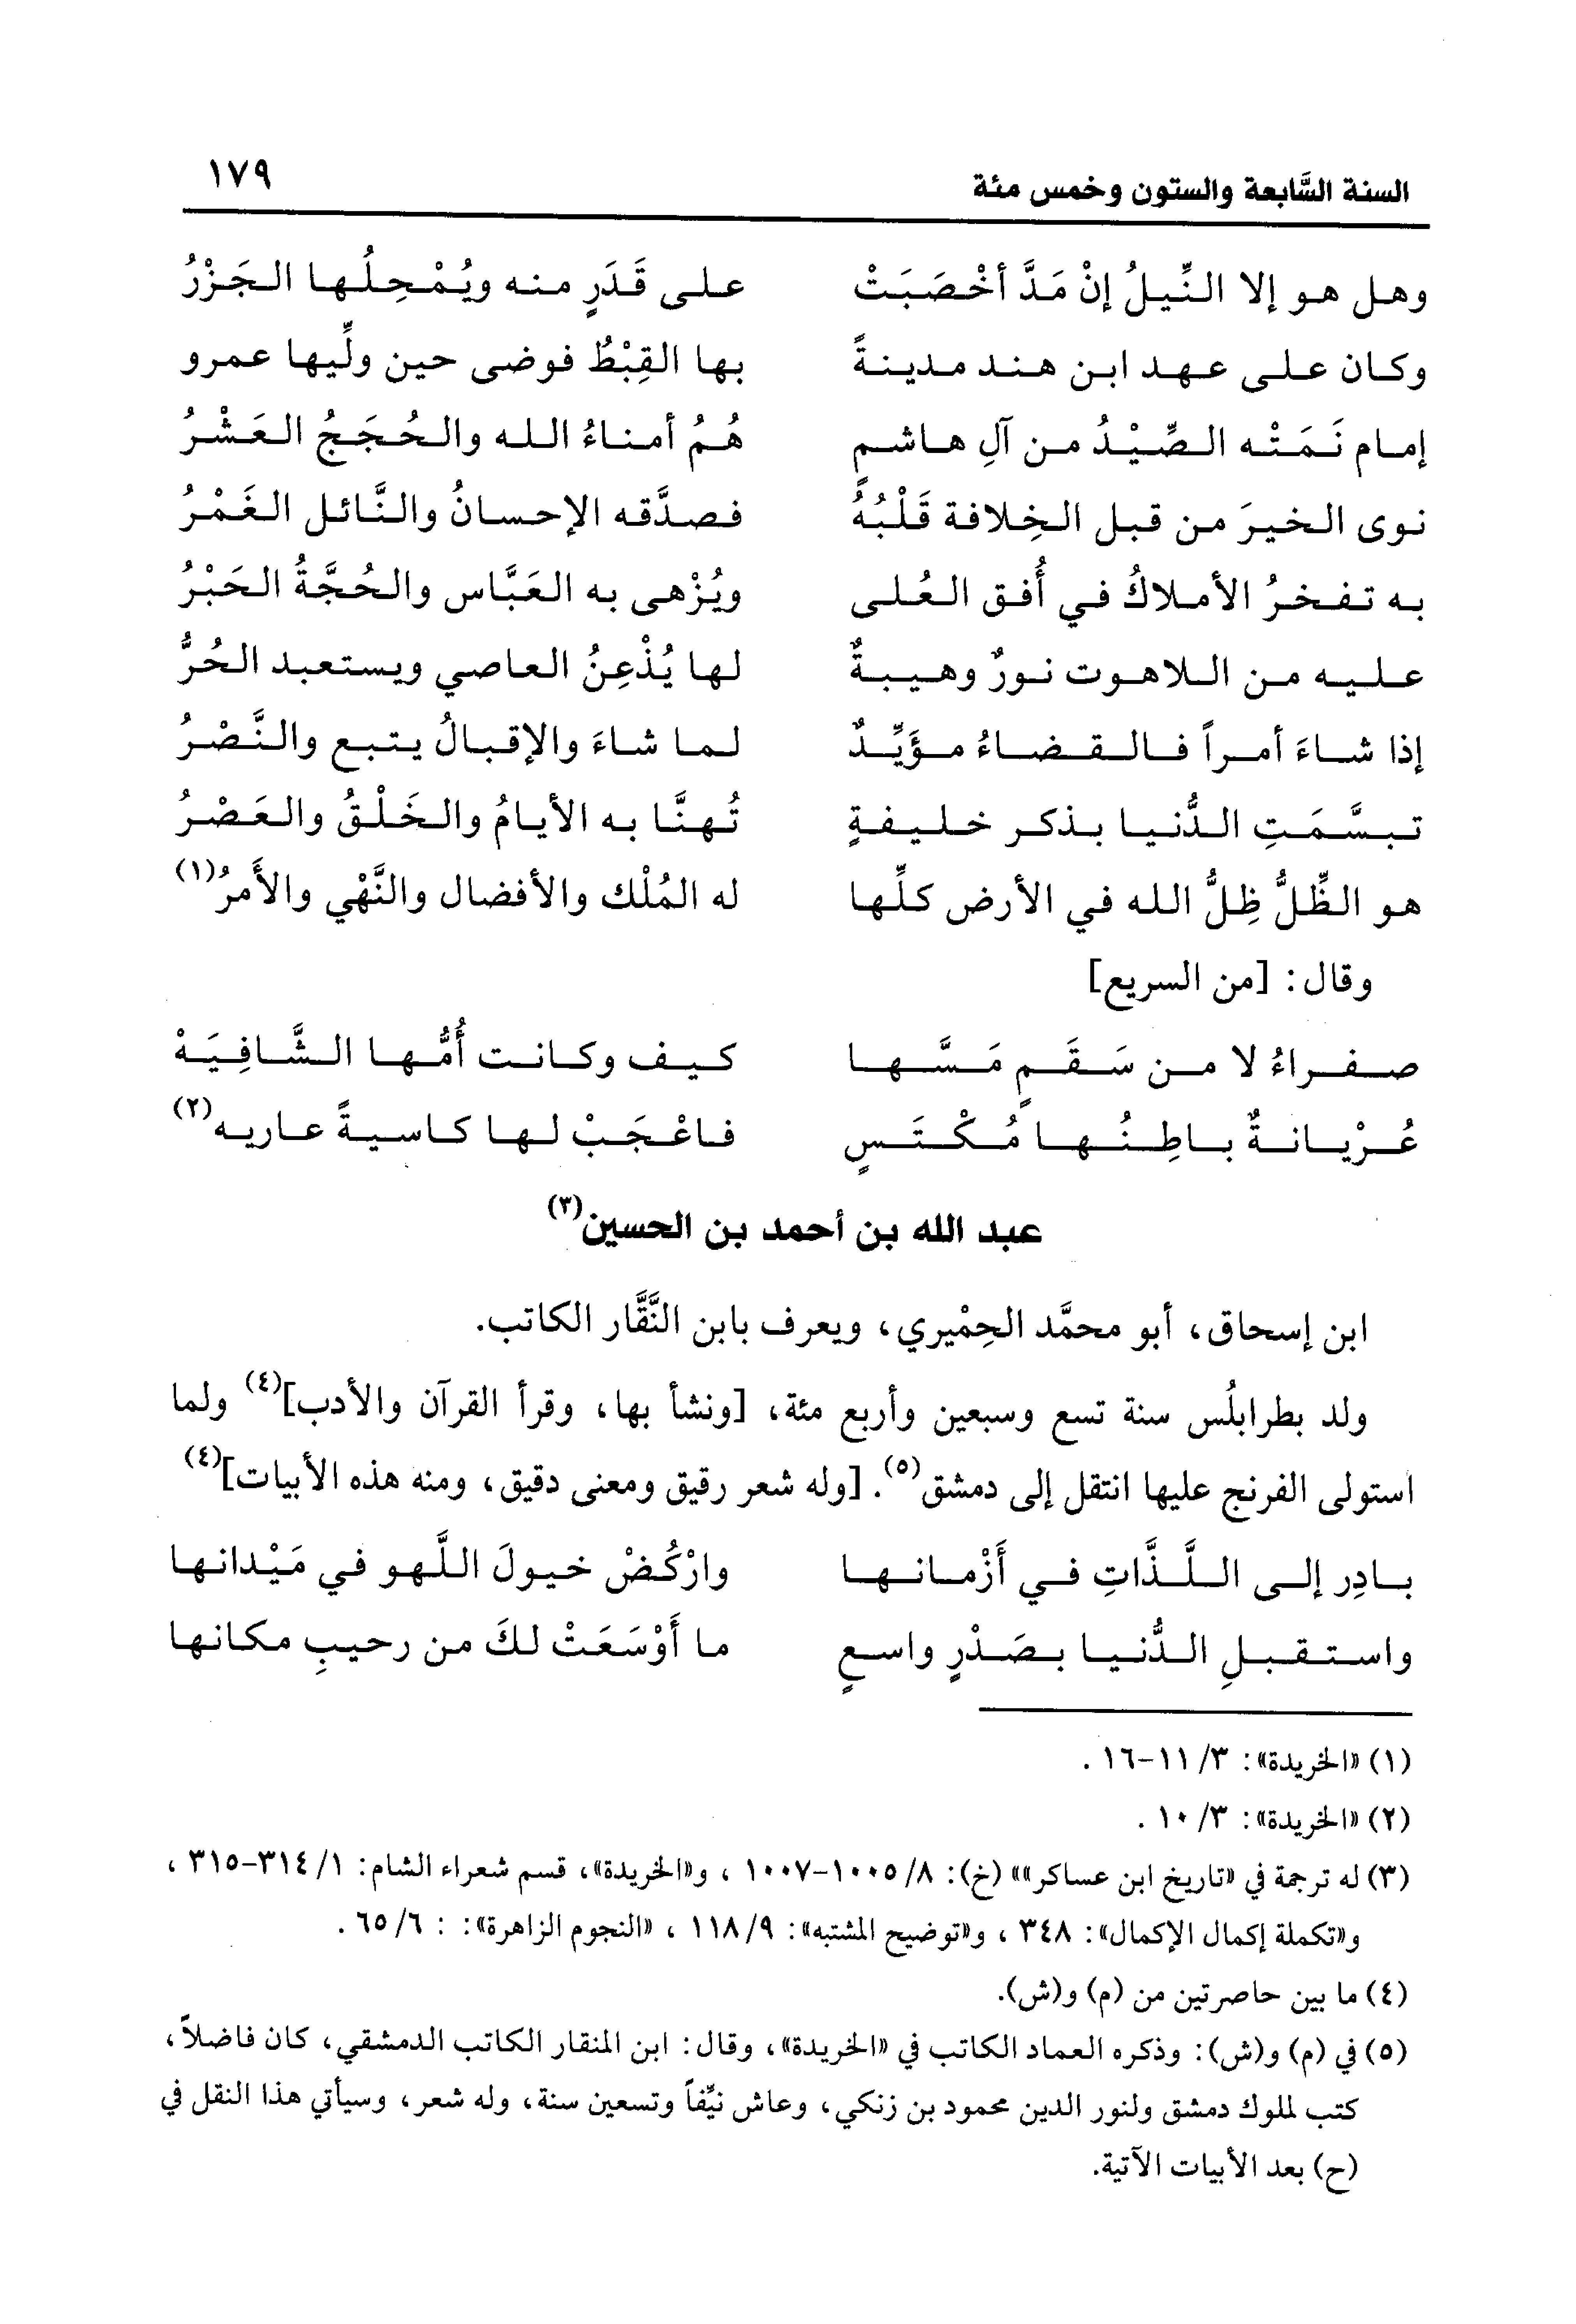 السنة السَّابعة والستون وخمس مئة ١٧٩
وهل هو إلا النِّيلُ إنْ مَدَّ أخْصَبَتْ على قَدَرٍ منه ويُمْحِلُها الجَزْرُ
وكان على عهد ابن هند مدينةً بها القِبْطُ فوضى حين ولِّيها عمرو
إمام نَمَتْه الصِّيْدُ من آلِ هاشمٍ هُمُ أمناءُ الله والحُجَجُ العَشْرُ
نوى الخيرَ من قبل الخِلافة قَلْبُهُ فصدَّقه الإحسانُ والنَّائل الغَمْرُ
به تفخرُ الأملاكُ في أُفق العُلى ويُزْهى به العَبَّاس والحُجَّةُ الحَبْرُ
عليه من اللاهوت نورٌ وهيبةٌ لها يُذْعِنُ العاصي ويستعبد الحُرُّ
إذا شاءَ أمراً فالقضاءُ مؤَيِّدٌ لما شاءَ والإقبالُ يتبع والنَّصْرُ
تبسَّمَتِ الدُّنيا بذكر خليفةٍ تُهنَّا به الأيامُ والخَلْقُ والعَصْرُ
هو الظِّلُّ ظِلُّ الله في الأرض كلِّها له المُلْك والأفضال والنَّهْي والأَمرُ(١)
وقال: [من السريع]
صفراءُ لا من سَقَمٍ مَسَّها كيف وكانت أُمُّها الشَّافِيَهْ
عُرْيانةٌ باطِنُها مُكْتَسٍ فاعْجَبْ لها كاسيةً عاريه(٢)
عبد الله بن أحمد بن الحسين(٣)
ابن إسحاق، أبو محمَّد الحِمْيري، ويعرف بابن النَّقَّار الكاتب.
ولد بطرابلُس سنة تسع وسبعين وأربع مئة، [ونشأ بها، وقرأ القرآن والأدب](٤) ولما
استولى الفرنج عليها انتقل إلى دمشق(٥). [وله شعر رقيق ومعنى دقيق، ومنه هذه الأبيات](٤)
بادِر إلى اللَّذَّاتِ في أَزْمانها وارْكُضْ خيولَ اللَّهو في مَيْدانها
واستقبلِ الدُّنيا بصَدْرٍ واسعٍ ما أَوْسَعَتْ لكَ من رحيبِ مكانها
(١) «الخريدة»: ٣/ ١١-١٦ .
(٢) «الخريدة»: ٣/ ١٠ .
(٣) له ترجمة في «تاريخ ابن عساكر»» (خ): ٨/ ١٠٠٥-١٠٠٧ ، و«الخريدة»، قسم شعراء الشام: ١/ ٣١٤-٣١٥ ،
و«تكملة إكمال الإكمال»: ٣٤٨ ، و«توضيح المشتبه»: ٩/ ١١٨ ، «النجوم الزاهرة»: : ٦/ ٦٥ .
(٤) ما بين حاصرتين من (م) و(ش).
(٥) في (م) و(ش): وذكره العماد الكاتب في «الخريدة»، وقال: ابن المنقار الكاتب الدمشقي، كان فاضلاً،
كتب لملوك دمشق ولنور الدين محمود بن زنكي، وعاش نيِّفاً وتسعين سنة، وله شعر، وسيأتي هذا النقل في
(ح) بعد الأبيات الآتية.